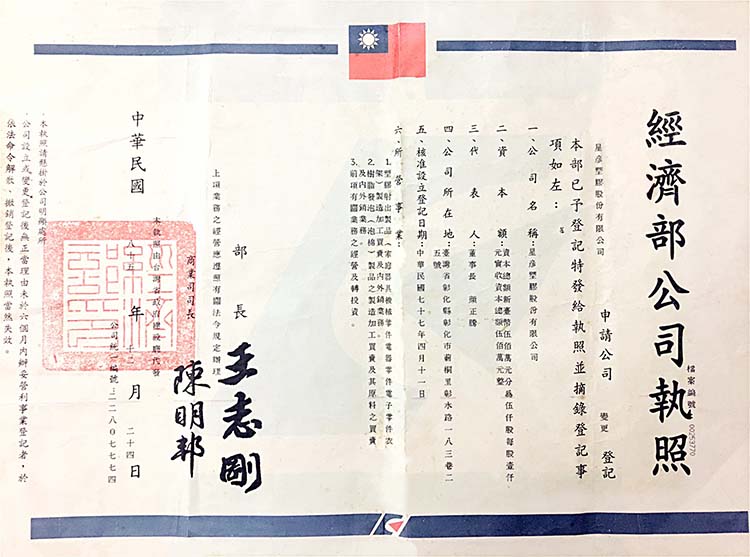 經濟部公司執照
檔案編號 00253770
星彥塑膠股份有限公司 申請公司 變更 登記
本部已予登記特發給執照並摘錄登記事
項如左：
一、公司名稱：星彥塑膠股份有限公司
二、資本額：資本總額新臺幣伍佰萬元分爲伍仟股每股壹仟
元實收資本總額伍佰萬元整
三、代表人：董事長 顏正騰
四、公司所在地：臺灣省彰化縣彰化市莿桐里彰水路一八三巷二
五號
五、核准設立登記日期：中華民國七十七年四月十一日
六、所營事業：
1.塑膠射出製品（家庭器具機械零件電器零件電子零件衣
架）製造加工買賣及內外銷業務。
2.樹脂發泡（泡棉）製品之製造加工買賣及其原料之買賣
及內外銷業務。
3.前項有關業務之經營及轉投資。
上項業務之經營應遵照有關法令規定辦理
部長 王志剛
商業司司長 陳明邦
本執照由台灣省政府建設廳代發
中華民國 八十五 年 十二 月 二十四 日
公司統一編號：二二八〇七七七四
·本執照請懸掛於公司明顯處所
·公司設立或變更登記後無正當理由未於六個月內辦妥營利事業登記者，於
依法命令解散、撤銷登記後，本執照當然失效。